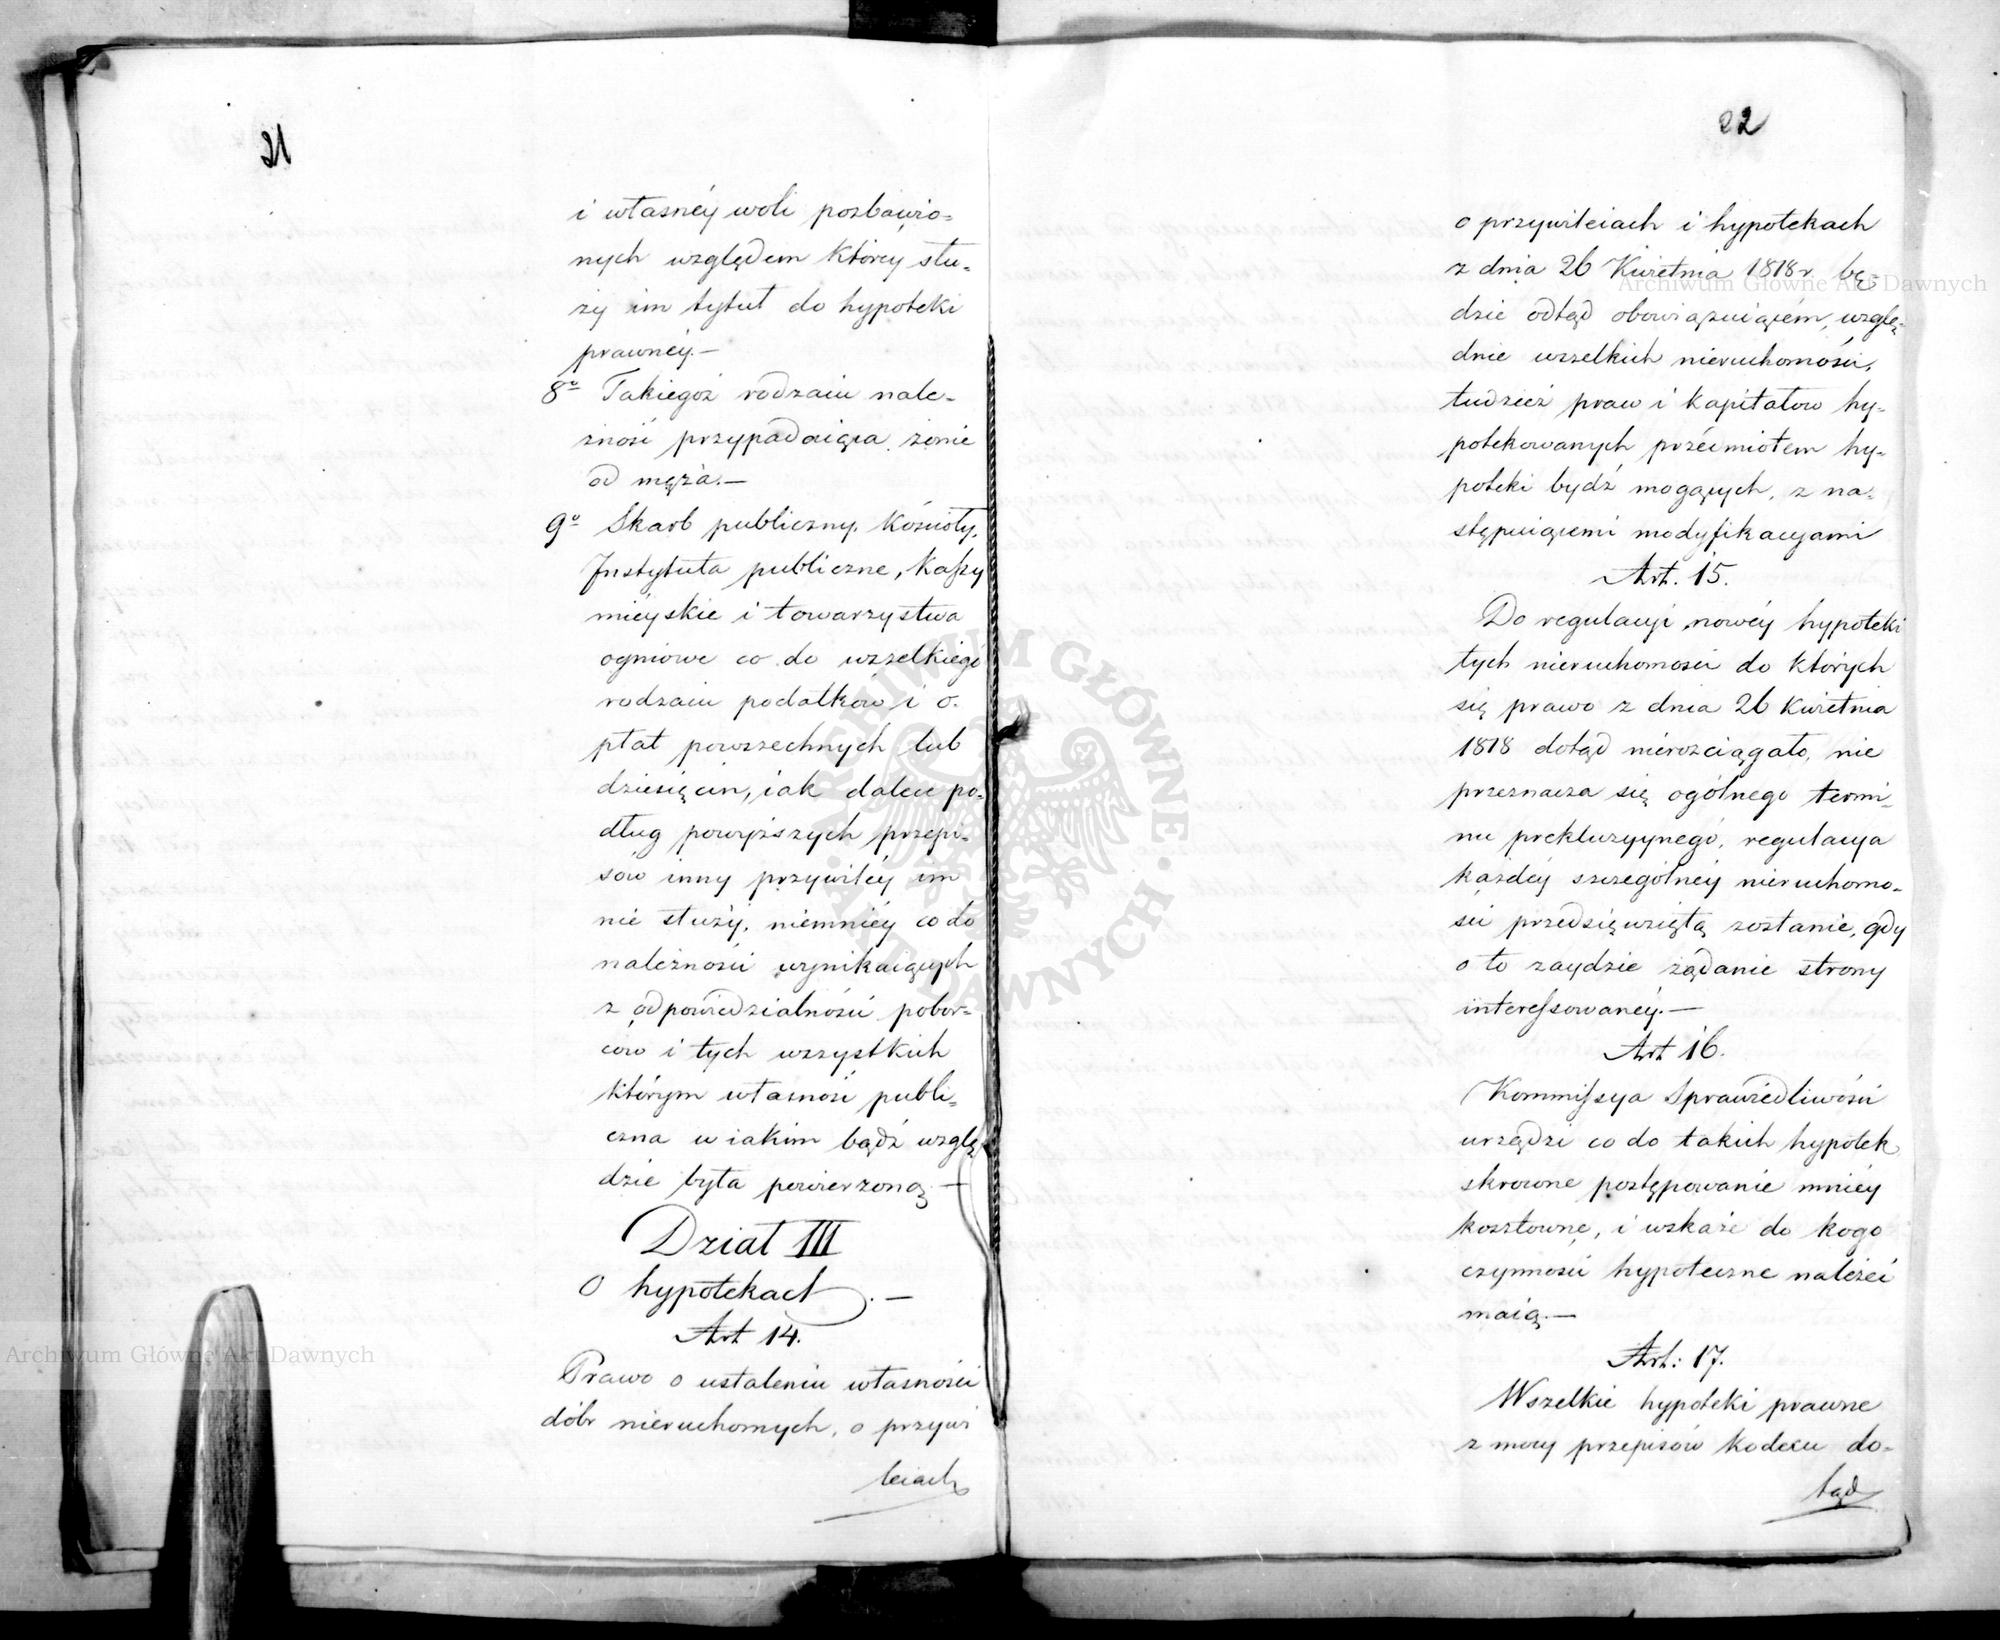 21
i własnéy woli pozbawio=
nych względem któréy słu=
ży im tytuł do hypoteki
prawnéy.—
8º Takiegoż rodzaiu nale=
żność przypadaiąca żonie
od męża.—
9º Skarb publiczny, Kościoły,
Instytuta publiczne, Kassy
mieyskie i towarzystwa
ogniowe co do wszelkiego
rodzaiu podatków i o=
płat powszechnych lub
dziesięcin, iak dalece po=
dług powyższych przepi=
sów inny przywiléy im
nie służy, niemniéy co do
należności wynikaiących
z odpowiedzialności pobor=
ców i tych wszystkich
którym własność publi=
czna w iakim bądź wzglę
dzie była powierzoną.—
Dział III
O hypotekach.—
Art 14.
Prawo o ustaleniu własności
dóbr nieruchomych, o przywi
leiach
22
o przywileiach i hypotekach
z dnia 26 Kwietnia 1818 r. bę=
dzie odtąd obowiązuiącém, wzglę=
dnie wszelkich nieruchomości,
tudzież praw i kapitałów hy=
potekowanych przedmiotem hy=
poteki bydź mogących, z na=
stępuiącemi modyfikacyami
Art. 15.
Do regulacyi nowéy hypoteki
tych nieruchomości do których
się prawo z dnia 26 Kwietnia
1818 dotąd nierozciągało, nie
przeznacza się ogólnego termi=
nu prekluzyynego, regulacya
każdéy szczególnéy nieruchomo=
ści przedsięwziętą zostanie, gdy
o to zaydzie żądanie strony
interessowanéy.—
Art 16.
Kommissya Sprawiedliwości
urządzi co do takich hypotek
skrócone postępowanie mniéy
kosztowne, i wskaże do kogo
czynności hypoteczne należeć
maią.—
Art: 17.
Wszelkie hypoteki prawne
z mocy przepisów Kodexu do=
tąd
Archiwum Główne Akt Dawnych
Archiwum Główne Akt Dawnych
· ARCHIWUM GŁÓWNE · AKT DAWNYCH